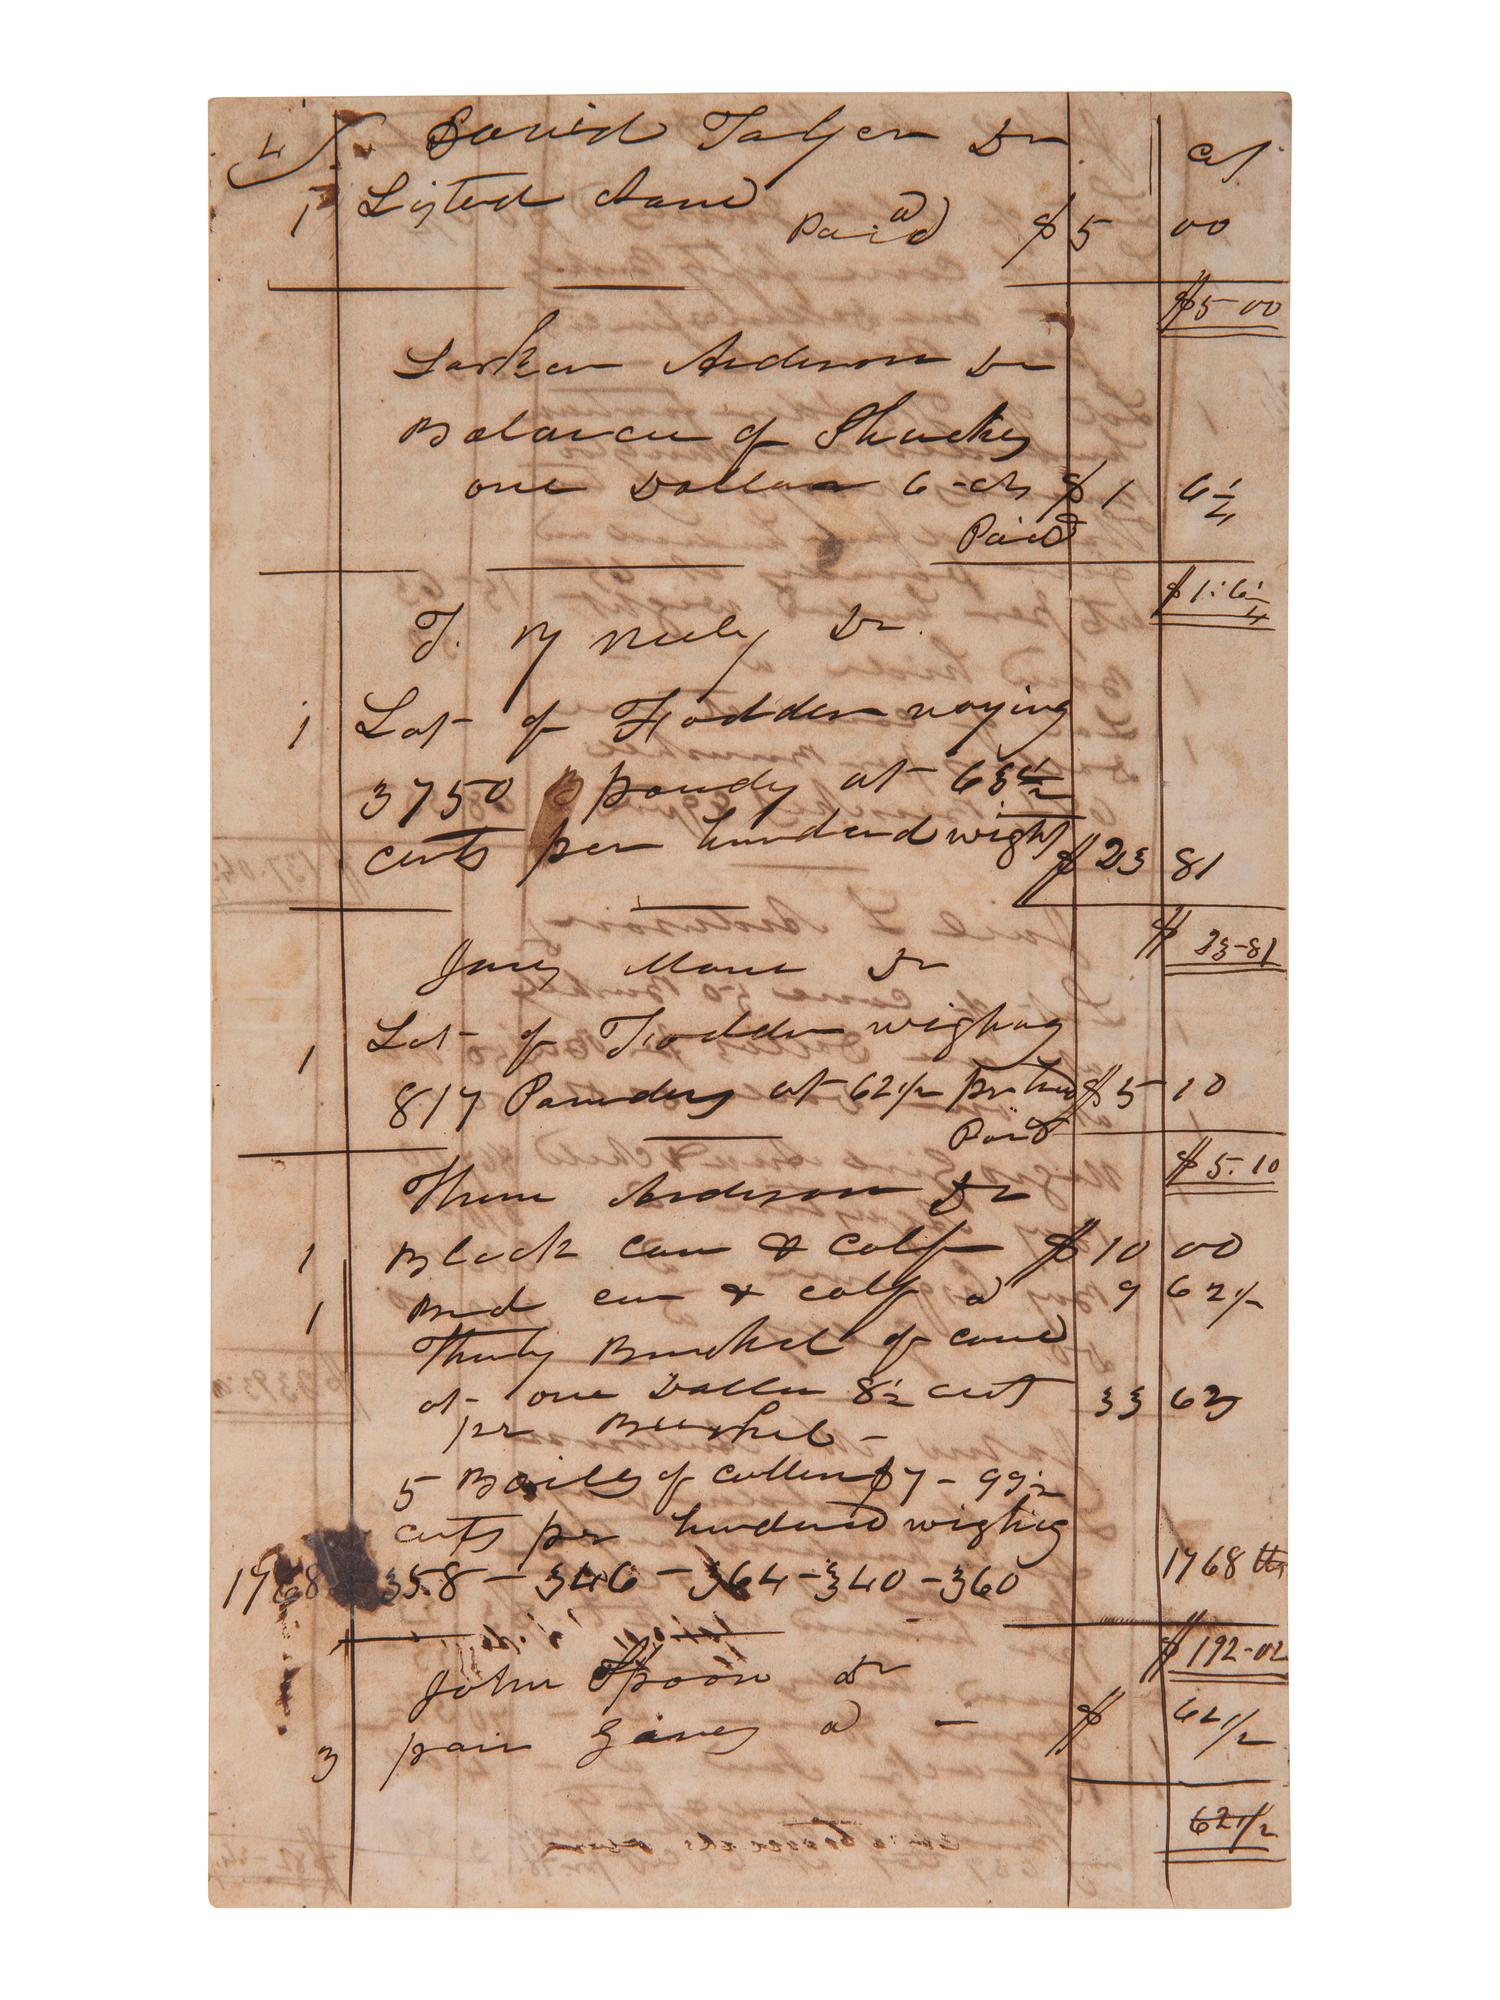 4
David Dr cts
1 Listed
Paid $5 00
$5-00
Larken Anderson Dr
Balance of
one Dollar 6-cts $1 6¼
Paid
$1:6¼
T. M Neely Dr.
1 Lot of Fodder waying
3750 poundy at 63½
cents per hundred wight $23 81
$23-81
Mane Dr
1 Lot of Fodder wighing
817 Poundes at 62½ pr hund $5 10
Paid
$5.10
Anderson Dr
1 Black cow & calf $10 00
1 Red cow & calf a 9 62½
Thirty Bushel of corn
at one Dollar 8½ cents 33 63
per Bushel -
5 Bailes of cotten $7-99½
cents per hundred wighing
1768 358-346-364-340-360 1768 lbs
$192-02
John Spoon Dr
3 pair a - $ 62½
62½